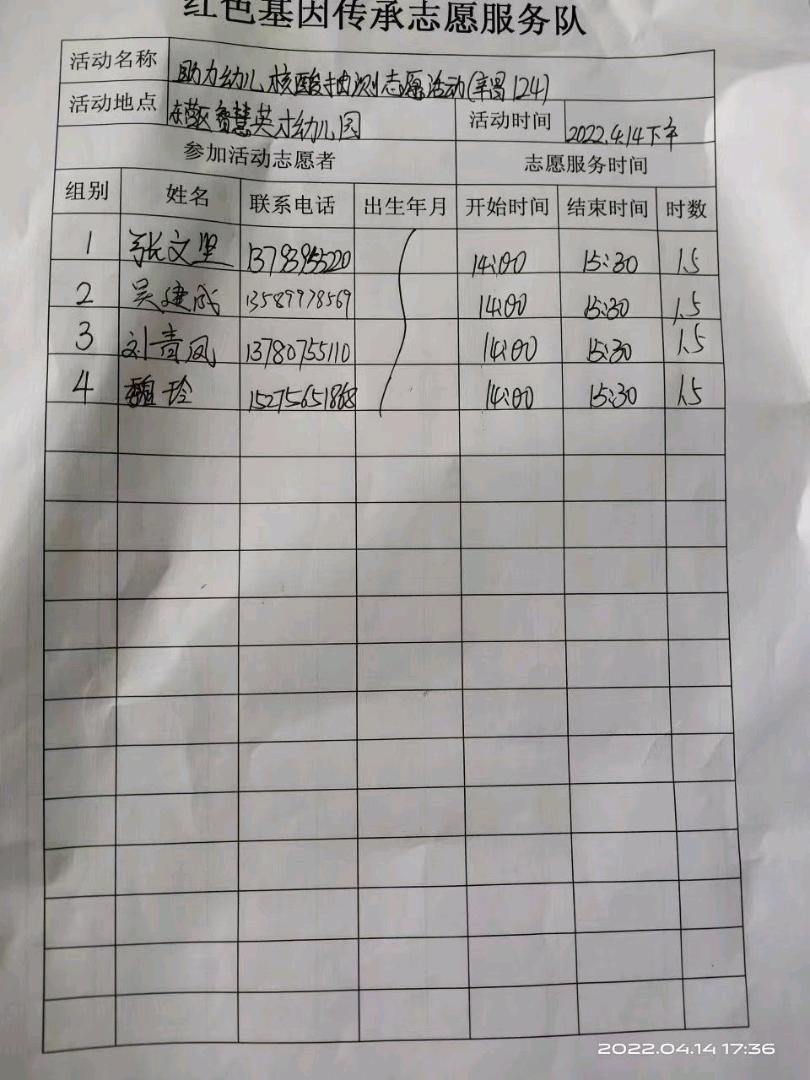 红色基因传承志愿服务队
活动名称 助力幼儿核酸抽测志愿活动(124)
活动地点 智慧英才幼儿园 活动时间 2022.4.14下午
参加活动志愿者 志愿服务时间
组别 姓名 联系电话 出生年月 开始时间 结束时间 时数
1 张文坚 13793955220 14:00 15:30 1.5
2 吴建成 13589978569 14:00 15:30 1.5
3 刘青凤 13780755110 14:00 15:30 1.5
4 魏玲 15275651868 14:00 15:30 1.5
2022.04.14 17:36